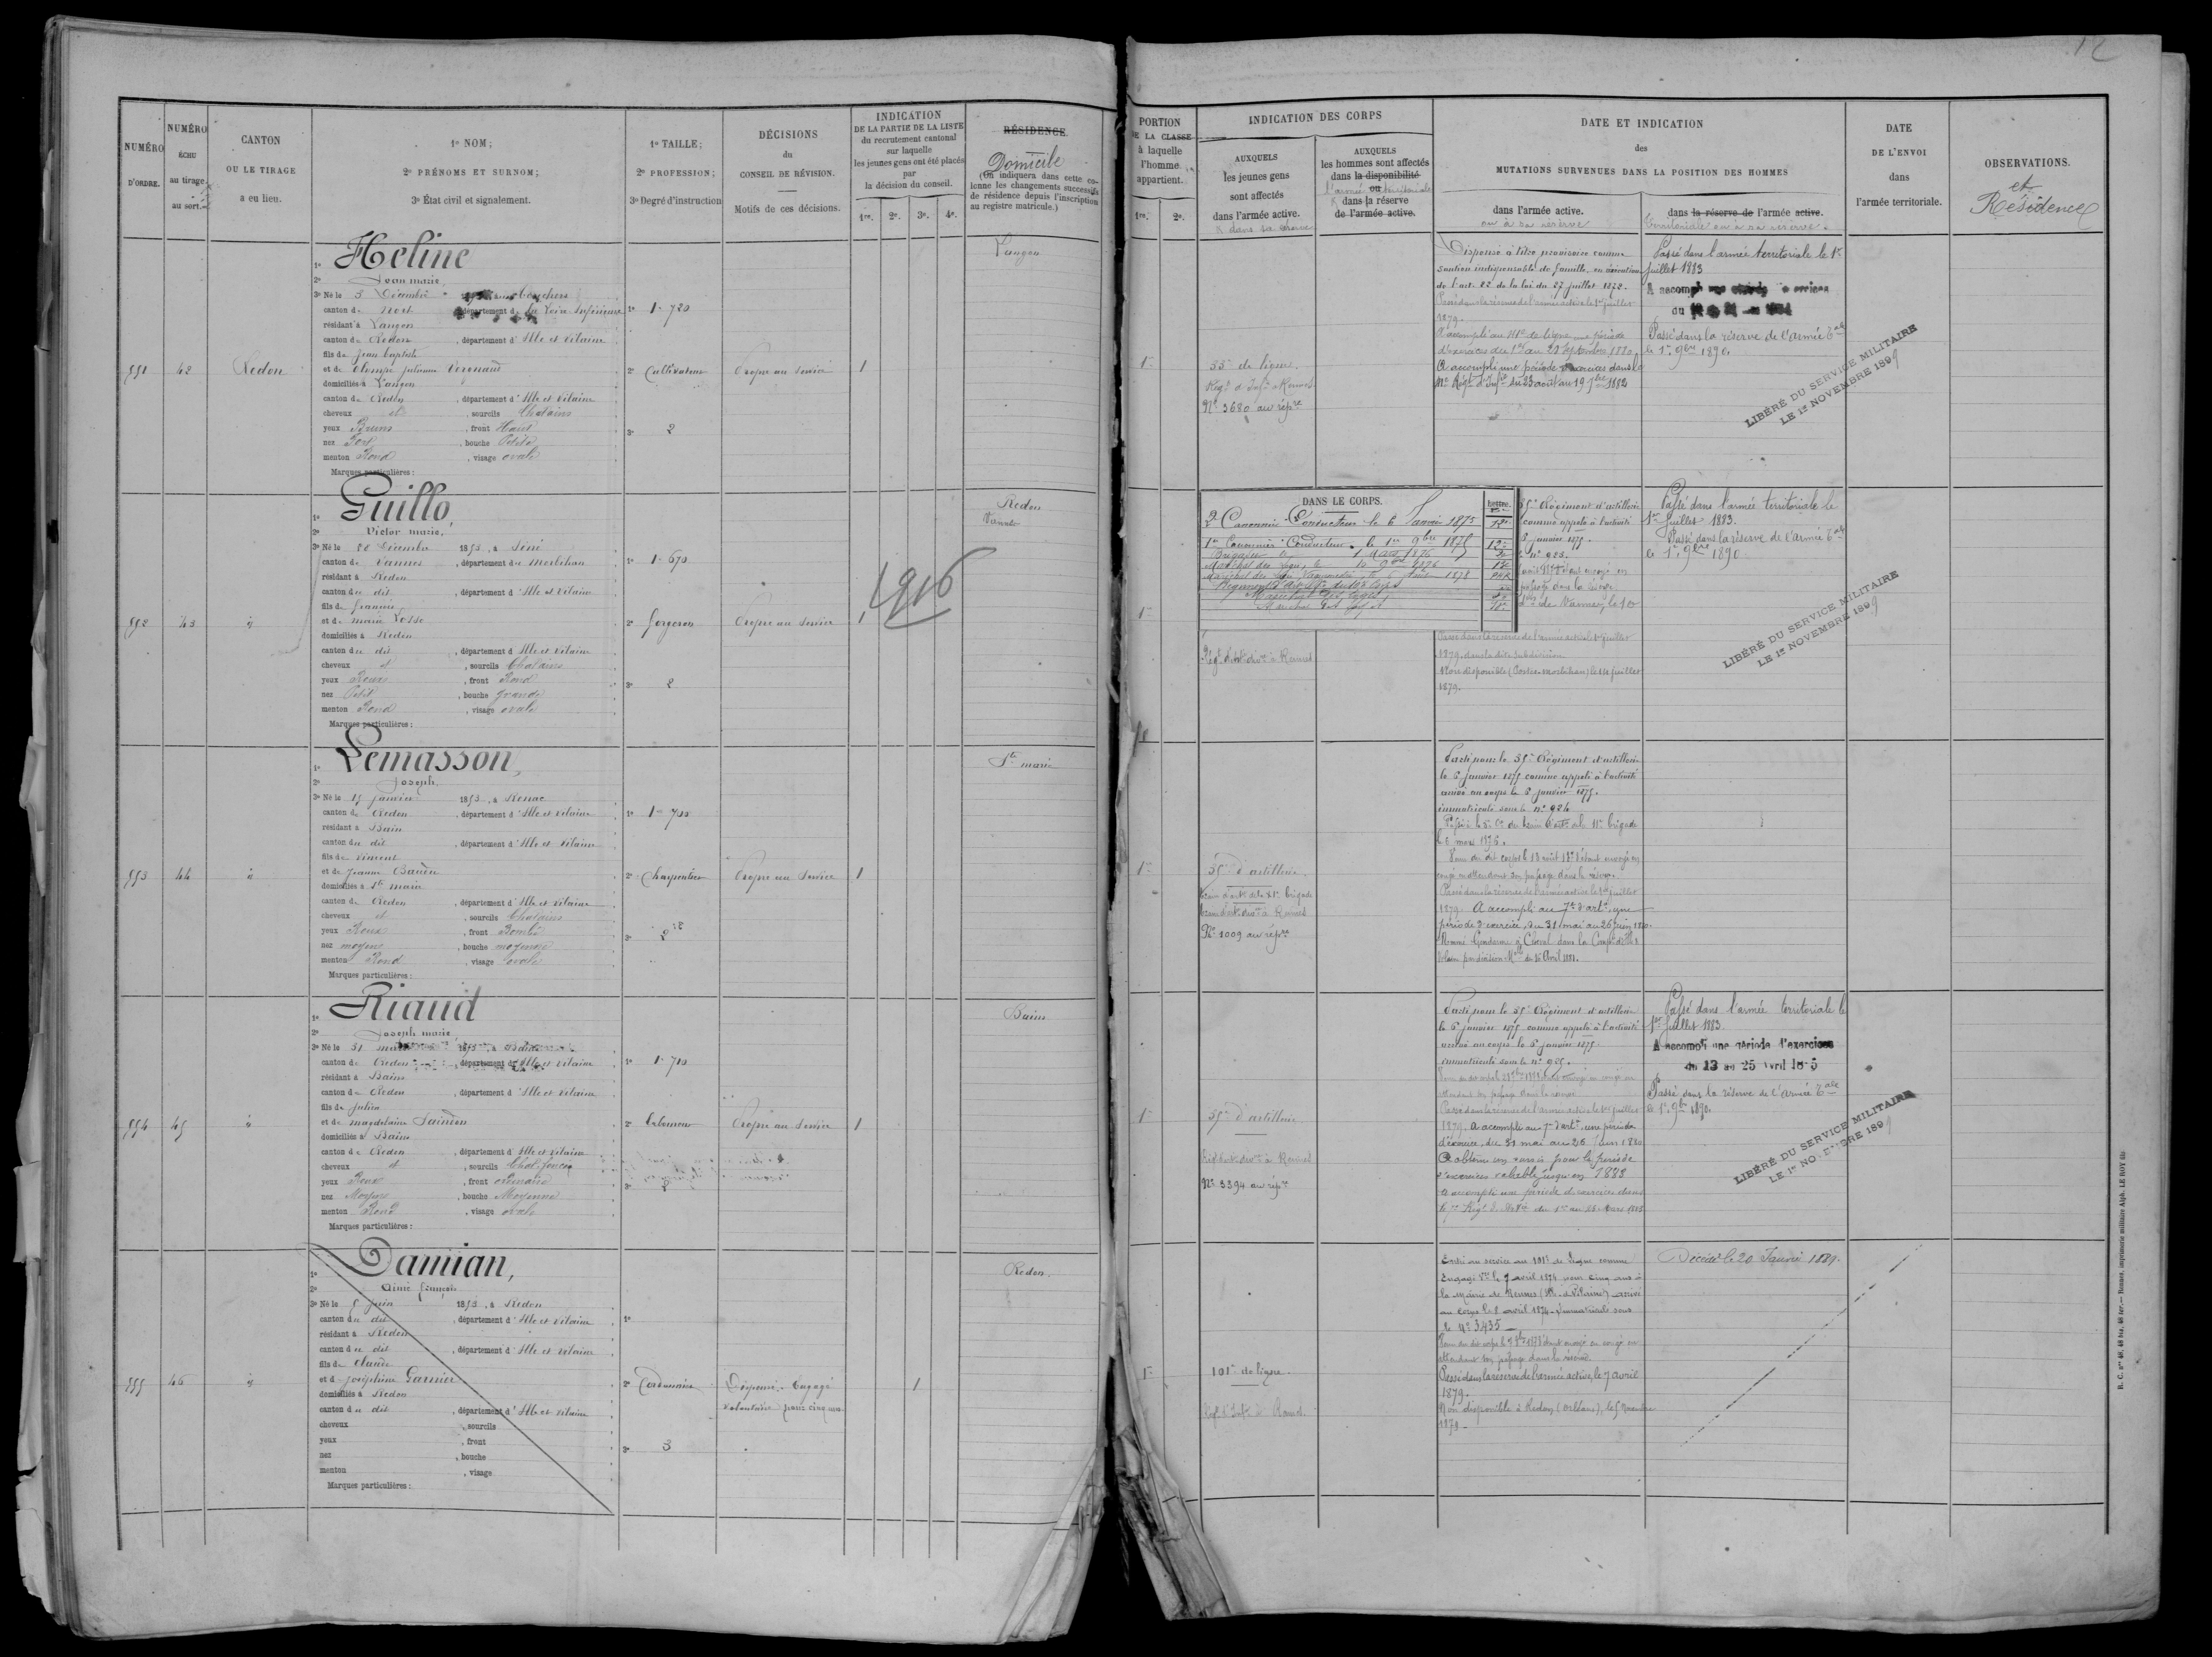 12
NUMÉRO
D'ORDRE.
NUMÉRO
ÉCHU
au tirage
au sort.
CANTON
OU LE TIRAGE
a eu lieu.
1º NOM;
2º PRÉNOMS ET SURNOM;
3º État civil et signalement.
1º TAILLE;
2º PROFESSION;
3º Degré d'instruction
DÉCISIONS
du
CONSEIL DE RÉVISION.
Motifs de ces décisions.
INDICATION
DE LA PARTIE DE LA LISTE
du recrutement cantonal
sur laquelle
les jeunes gens ont été placés
par
la décision du conseil.
1re. 2e. 3e. 4e.
RÉSIDENCE
Domicile
(On indiquera dans cette co-
lonne les changements successifs
de résidence depuis l'inscription
au registre matricule.)
PORTION
DE LA CLASSE
à laquelle
l'homme
appartient.
1re. 2e.
INDICATION DES CORPS
AUXQUELS
les jeunes gens
sont affectés
dans l'armée active.
& dans sa réserve
AUXQUELS
les hommes sont affectés
dans la disponibilité
ou
l'armée territoriale
dans la réserve
de l'armée active.
DATE ET INDICATION
des
MUTATIONS SURVENUES DANS LA POSITION DES HOMMES
dans l'armée active.
ou à sa réserve
dans la réserve de l'armée active.
territoriale ou à sa réserve.
DATE
DE L'ENVOI
dans
l'armée territoriale.
OBSERVATIONS.
et
Résidence
551
42
Redon
1º Heline
2º Jean marie,
3º Né le 5 Décembre
canton de Nort, département de la Loire Inférieure
résidant à Langon
canton de Redon, département d'Ille et Vilaine
fils de Jean baptiste
et de Olympe julienne
domiciliés à Langon
canton de Redon, département d'Ille et Vilaine
cheveux et, sourcils Chatains
yeux Bruns, front Haut
nez Fort, bouche Petite
menton Rond, visage ovale
Marques particulières:
1º 1-720
2º Cultivateur
3º 2
Propre au service
1
Langon
1re
35e de ligne.
Régt d'Infie à Rennes
Nº 3680 au répre
Dispensé à titre provisoire comme
soutien indispensable de famille, en exécution
de l'art. 22 de la loi du 27 juillet 1872.
Passé dans la réserve de l'armée active le 1er juillet
1879.
A accompli au 41e de ligne une période
d'exercices du 1er au 28 septembre 1880.
A accompli une période d'exercices dans le
41e Régt d'Infie du 23 août au 19 7bre 1882
Passé dans l'armée territoriale le 1er
juillet 1883
A accompli
Passé dans la réserve de l'armée Tale
le 1er 9bre 1890.
LIBÉRÉ DU SERVICE MILITAIRE
LE 1er NOVEMBRE 1899
552
43
id
1º Guillo,
2º Victor marie,
3º Né le 26 Décembre 1853, à Séné
canton de Vannes, département de Morbihan
résidant à Redon
canton du dit, département d'Ille et Vilaine
fils de françois
et de marie Josse
domiciliés à Redon
canton du dit, département d'Ille et Vilaine
cheveux et, sourcils Chatains
yeux Roux, front Rond
nez Petit, bouche grande
menton Rond, visage ovale
Marques particulières:
1º 1-670
2º forgeron
3º 2
Propre au service
1
1916
Redon
Vannes
1re
DANS LE CORPS.
2e Canonnier Conducteur le 6 Janvier 1875
1er Canonnier Conducteur le 1er 9bre 1875
Brigadier le 1 Mars 1876
35e Régiment d'artillerie
comme appelé à l'activité
6 janvier 1875.
nº 923.
Régt d'artie divre à Rennes
Passé dans la réserve de l'armée active le 1er juillet
1879, dans la dite subdivision
Non disponible (Postes Morbihan) le 14 juillet
1879.
Passé dans l'armée territoriale le
1er juillet 1883.
Passé dans la réserve de l'armée Tale
le 1er 9bre 1890
LIBÉRÉ DU SERVICE MILITAIRE
LE 1er NOVEMBRE 1899
553
44
id
1º Lemasson,
2º Joseph,
3º Né le 15 janvier 1853, à Renac
canton de Redon, département d'Ille et Vilaine
résidant à Bain
canton du dit, département d'Ille et Vilaine
fils de Vincent
et de jeanne
domiciliés à Ste marie
canton de Redon, département d'Ille et Vilaine
cheveux et, sourcils Chatains
yeux Roux, front Bombé
nez moyen, bouche moyenne
menton Rond, visage ovale
Marques particulières:
1º
2º Charpentier
3º 2
Propre au service
1
Ste marie
1re
35e d'artillerie.
train d'artie de la XIe brigade
train d'artie divre à Rennes
Nº 1009 au répre
Parti pour le 35e Régiment d'artillerie
le 6 janvier 1875 comme appelé à l'activité
arrivé au corps le 6 janvier 1875.
immatriculé sous le nº 924
Passé à la 5e Cie du train d'artie de la 11e brigade
le 6 mars 1876.
congé en attendant son passage dans la réserve.
Passé dans la réserve de l'armée active le 1er juillet
1879. A accompli au 7e d'artie, une
période d'exercice, du 31 mai au 26 juin 1880.
Nommé Gendarme à Cheval dans la Compie d'Ille &
Vilaine par décision Melle du 15 Avril 1881.
554
45
id
1º Riaud
2º Joseph marie
3º Né le 31 mars 1853, à Bains
canton de Redon, département d'Ille et Vilaine
résidant à Bains
canton de Redon, département d'Ille et Vilaine
fils de julien
et de magdelaine
domiciliés à Bains
canton de Redon, département d'Ille et Vilaine
cheveux et, sourcils Chat. foncés
yeux Roux, front ordinaire
nez Moyen, bouche Moyenne
menton Rond, visage ovale
Marques particulières:
1º 1-710
2º Laboureur
3º 2
Propre au service
1
Bains
1re
35e d'artillerie
Nº 3394 au répre
Parti pour le 35e Régiment d'artillerie
le 6 janvier 1875 comme appelé à l'activité
arrivé au corps le 6 janvier 1875.
immatriculé sous le nº 925.
attendant son passage dans la réserve
Passé dans la réserve de l'armée active le 1er juillet
1879. A accompli au 7e d'artie, une période
d'exercice, du 31 mai au 26 juin 1880
A obtenu un sursis pour la période
d'exercices valable jusqu'en 1883
A accompli une période d'exercices dans
Passé dans l'armée territoriale le
1er juillet 1883
A accompli une période d'exercices
du 13 au 25 Avril 1885
Passé dans la réserve de l'armée Tale
le 1er 9bre 1890.
LIBÉRÉ DU SERVICE MILITAIRE
LE 1er NOVEMBRE 1899
555
46
id
1º Damian,
2º Aimé françois
3º Né le 5 juin 1853, à Redon
canton du dit, département d'Ille et Vilaine
résidant à Redon
canton du dit, département d'Ille et Vilaine
fils de Claude
et de joséphine Garnier
domiciliés à Redon
canton du dit, département d'Ille et Vilaine
cheveux, sourcils
yeux, front
nez, bouche
menton, visage
Marques particulières:
1º
2º Cordonnier
3º 3
Dispensé. Engagé
volontaire pour cinq ans
1
Redon.
1re
101e de ligne.
Régt d'Infie à Rennes.
Entré au service au 101e de ligne comme
Engagé Vre le 7 avril 1874 pour cinq ans à
la Mairie de Rennes (Ille-&-Vilaine) arrivé
au corps le 8 avril 1874. Immatriculé sous
le Nº 3435
attendant son passage dans la réserve.
Passé dans la réserve de l'armée active, le 7 avril
1879.
Non disponible à Redon (Orléans), le 5 Novembre
1879
Décédé le 20 Janvier 1889.
R. C. nos 48, 48 bis, 48 ter. — Rennes, imprimerie militaire Alph. LE ROY fils